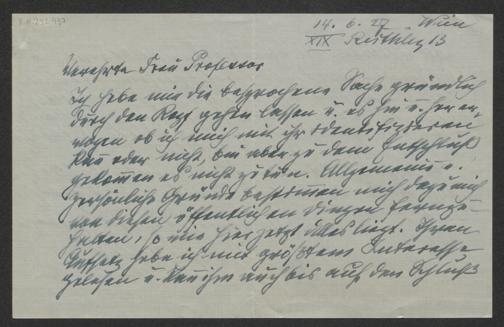 14. 6. 27 Wien
XIX 13
Verehrte Frau Professor
Ich habe mir die besprochene Sache gründlich
durch den Kopf gehen lassen u. es hin u. her er,
wogen ob ich mich mit ihr identifizieren
kann oder nicht, bin aber zu dem Entschluß
gekommen es nicht zu tun. Allgemeine u.
persönliche Gründe bestimmen mich dazu mich
von diesen öffentlichen Dingen fernzu-
halten, so wie hier jetzt alles liegt. Ihren
Aufsatz habe ich mit größtem Interesse
gelesen u. kann ihm auch bis auf den Schluß